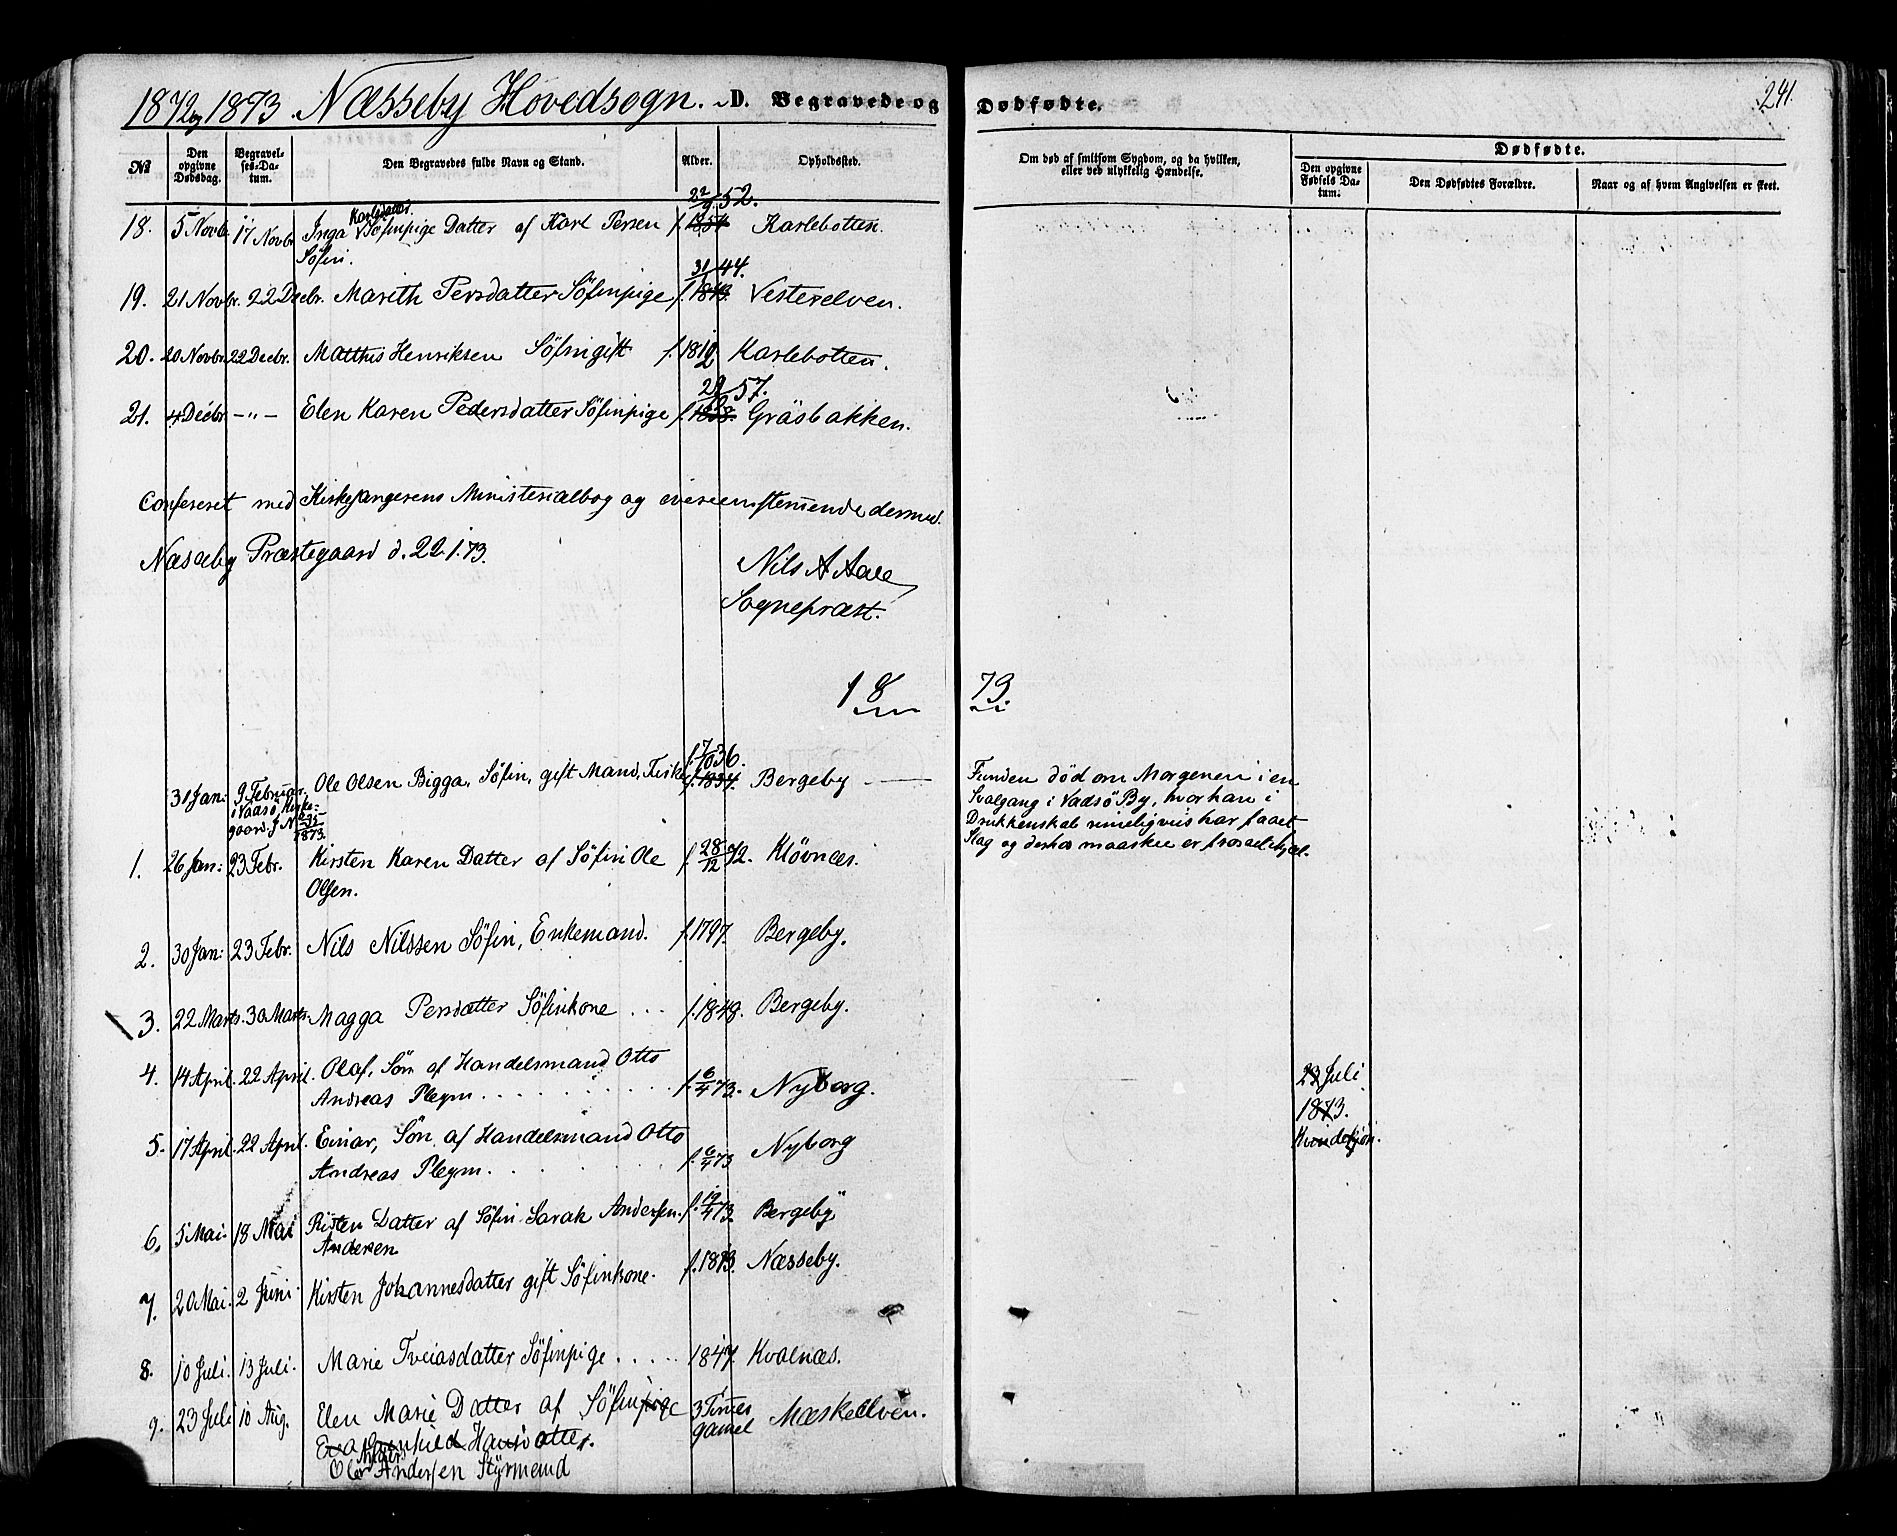 1872 og 1873. Næsseby Hovedsogn. D. Begravede og Dødfødte. 241.
No Den opgivne Dødsdag. Begravelses-Datum. Den Begravedes fulde Navn og Stand. Alder. Opholdssted. Om død af smitsom Sygdom, og da hvilken, eller ved ulykkelig Hændelse. Dødfødte.
Den opgivne Fødsels Datum. Den Dødfødtes Forældre. Naar og af hvem Angivelsen er skeet.
22/9 52.
18. 5 Novb. 17 Novbr. Inga Karlsdatter Söfinpige Datter af Karl Persen f. 1854 Karlebotten.
Söfin.
31/1 44.
19. 21 Novbr. 22 Decbr. Marith Persdatter Söfinpige f. 1843. Vesterelven.
20. 20 Novbr. 22 Decbr. Matthis Henriksen Söfin gift f. 1812 Karlebotten.
57.
21. 4 Decbr. -"- Elen Karen Pedersdatter Söfinpige f. 1858. Gräsbakken.
Confereret med Kirkesangerens Ministerialbog og overeenstemmende dermed.
Næsseby Præstegaard d. 22.1.73.
Nils A Aale
Sognepræst.
18 73.
31 Jan: 9 Februar. i Vadsö Kirkegaard. 1873. Ole Olsen Bigga, Söfin, gift Mand, Fisker f. 36. f. 1834. Bergeby
Funden död om Morgenen i en
Svalgang i Vadsö By, hvor han i
Drukkenskab rimeligviis har faaet
Slag og derhos maaskee er frosset ihjel.
1. 26 Jan: 23 Febr. Kirsten Karen Datter af Söfin Ole f. 28/12 72. Klövnes.
Olsen.
2. 30 Jan: 23 Febr. Nils Nilssen Söfin, Enkemand. f. 1797. Bergeby.
3. 22 Marts. 30 Marts. Magga Persdatter Söfinkone ... f. 1848. Bergeby.
4. 14 April. 22 April. Olaf, Sön af Handelsmand Otto
Andreas Pleym. f. 6/4 73. Nyborg.
23 Juli
1873.
Kvindekjön.
5. 17 April. 22 April. Einar, Sön af Handelsmand Otto
Andreas Pleym. f. 6/4 73 Nyborg
6. 5 Mai. 18 Mai Risten Datter af Söfin Sarak Andersen. f. 19/4 73. Bergeby
Andersen
7. 20 Mai. 2 Juni. Kirsten Johannesdatter gift Söfinkone. f. 1813. Næsseby.
8. 10 Juli. 13 Juli. Marie Tveiasdatter Söfinpige ..... 1847. Kvalnæs.
9. 23 Juli 10 Aug. Elen Marie Datter af Söfinpige 3 Timer gamel Mæskelven.
Eva Hansdatter.
Ole Andersen Styrmand